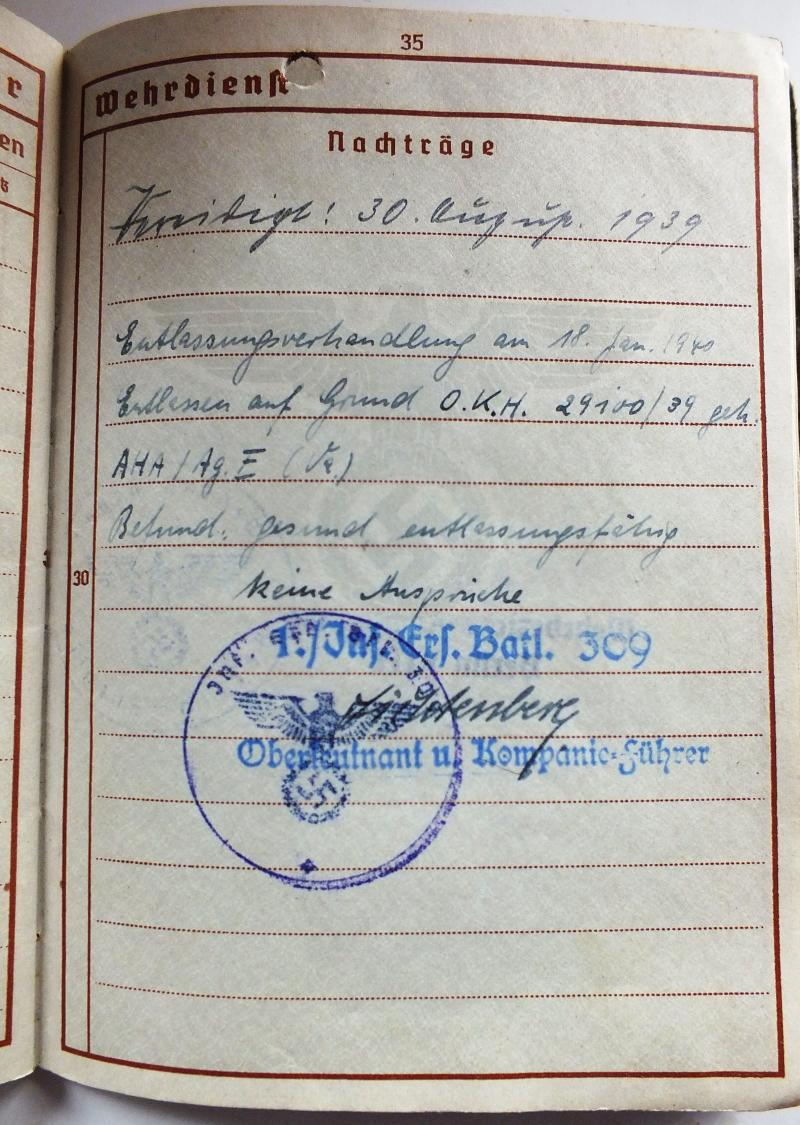 35
r
Wehrdienst
en
Nachträge
Vereidigt: 30. August. 1939
Entlassungsverhandlung am 18. Jan. 1940
Entlassen auf Grund O.K.H. 29100/39 geh.
AHA / Ag. E (Va.)
Befund: gesund, entlassungsfähig
30
keine Ansprüche
1./Inf. Ers. Batl. 309
Oberleutnant u. Kompanie-Führer